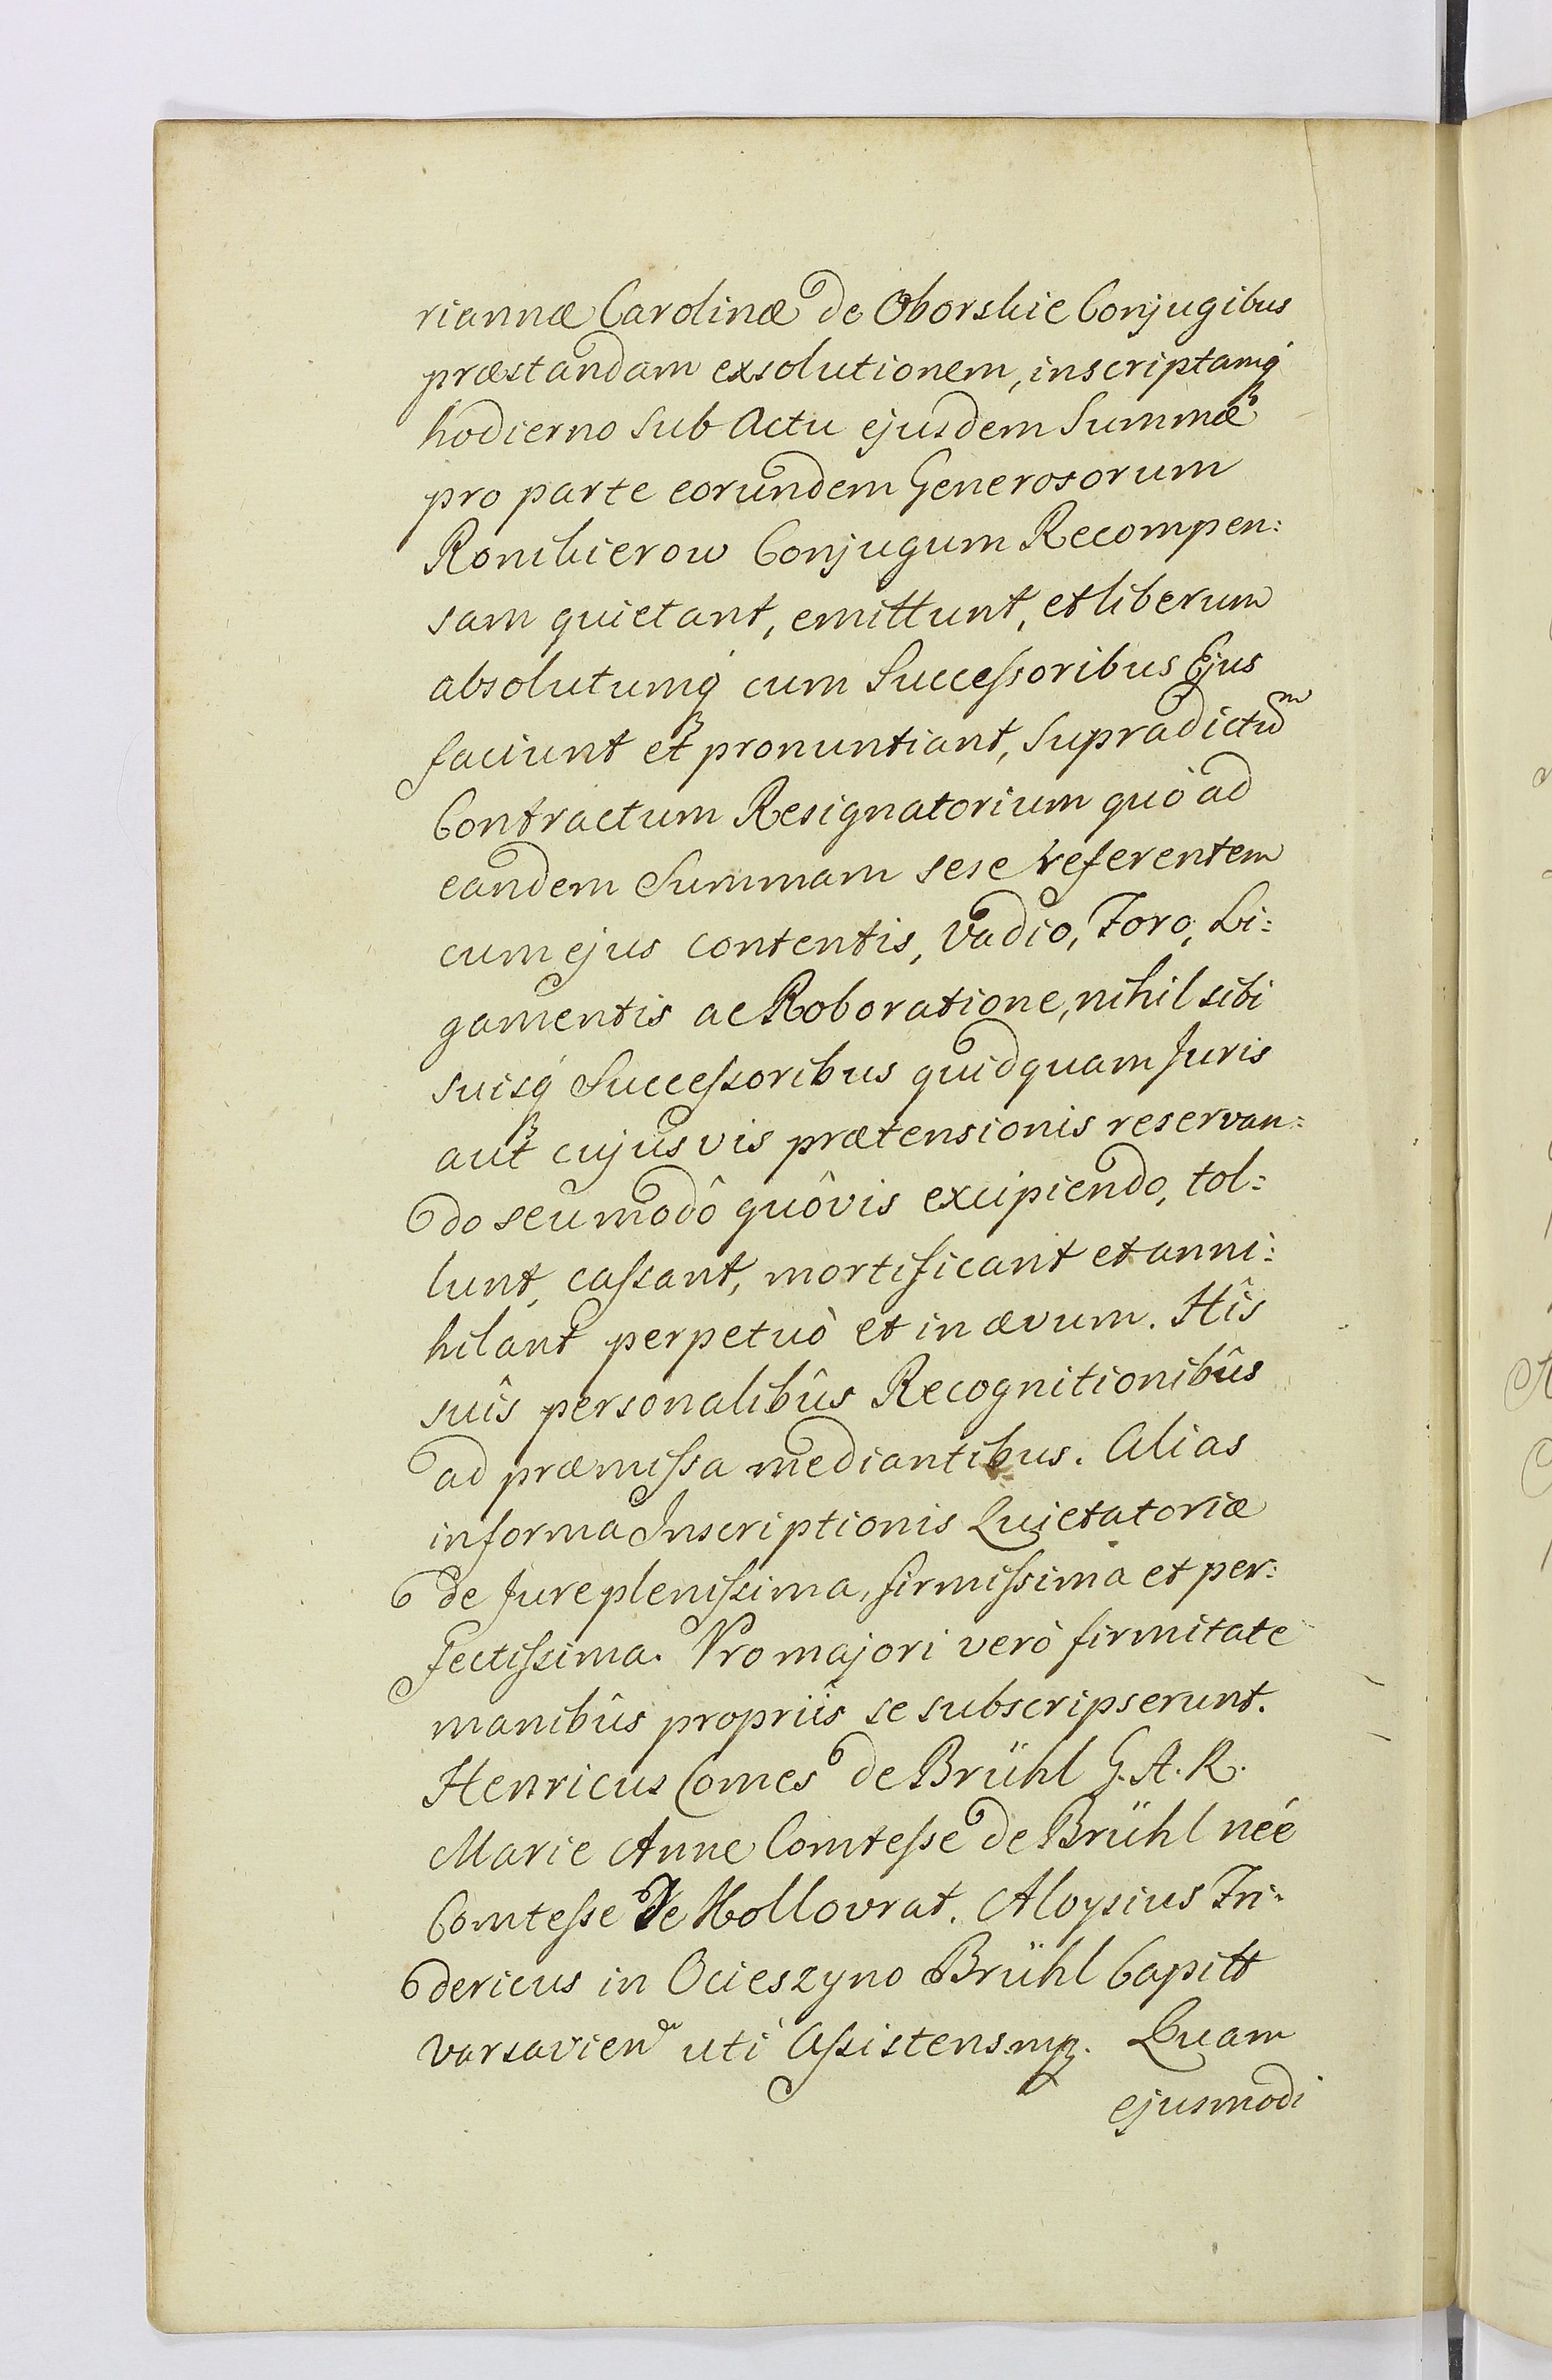 riannæ Carolinæ de Oborskie Conjugibus
præstandam exsolutionem, inscriptamq́
hodierno Sub Actu ejusdem Summæ
pro parte eorundem Generosorum
Ronikierow Conjugum Recompen:
sam quietant, emittunt, et liberum
absolutumq́ cum Succeſsoribus Ejus
faciunt et pronuntiant, Supradictum
Contractum Resignatorium quò ad
eandem Summam sese referentem
cum ejus contentis, Vadio, Foro, Li:
gamentis ac Roboratione, nihil sibi
suisq́ Succeſsoribus quidquam Juris
aut cujusvis prætensionis reservan:
do seu modô quôvis excipiendo, tol:
lunt, caſsant, mortificant et anni:
hilant perpetuò et in ævum. Hîs
suîs personalibûs Recognitionibûs
ad præmiſsa mediantibus. Alias
in forma Inscriptionis Quietatoriæ
de Jure pleniſsima, firmiſsima et per:
fectiſsima. Pro majori verò firmitate
manibûs propriîs se subscripserunt.
Henricus Comes de Brühl G. A. R.
Marie Anne Comteſse de Brühl née
Comteſse de Kollovrat. Aloysius Fri:
dericus in Ocieszyno Brühl Capitt
Varsavien uti Aſsistens mp. Quam
ejusmodi